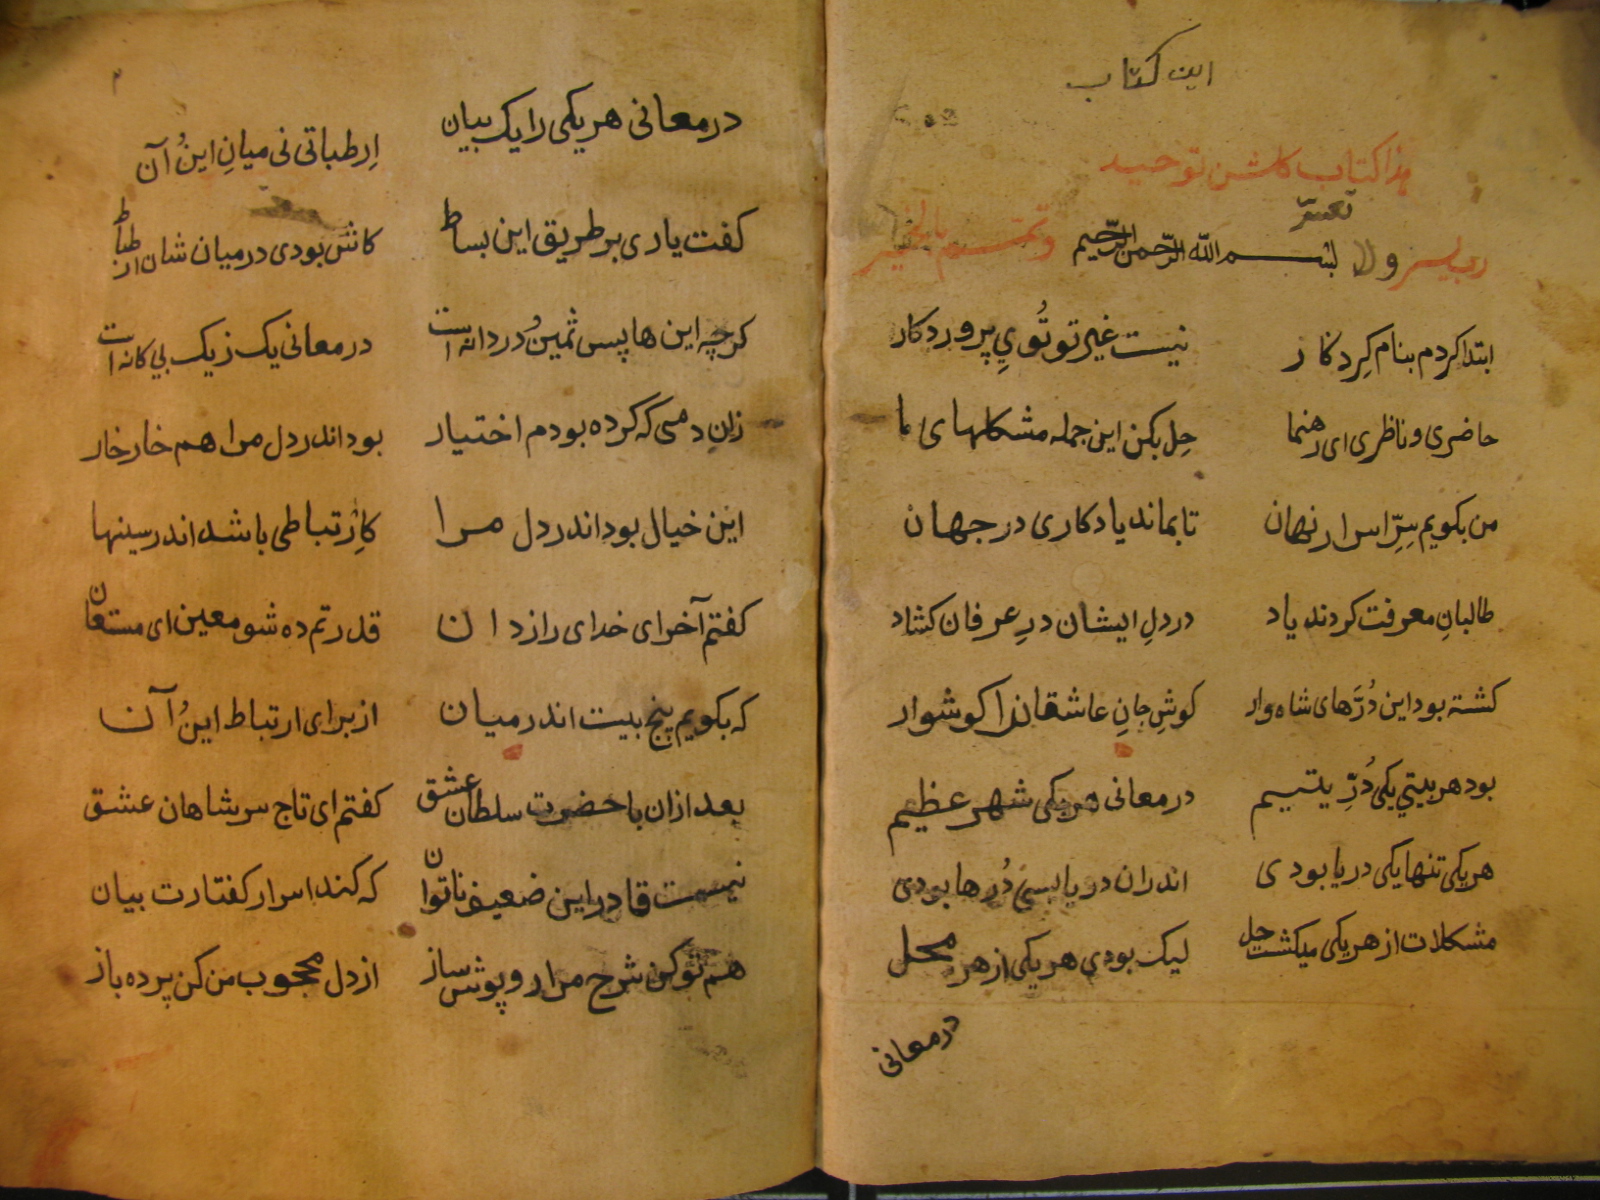 این کتاب
هذا کتاب کلشن توحید
رب یسر ولا تعسّر بسم الله الرّحمن الرّحیم وتمم بالخیر
ابتدا کردم بنام کِردکار نیست غیر تو تُویِ پروردکار
حاضری و ناظری ای رهنما حِل بکن این جمله مشکلهای ما
من بکویم سِرِّ اسرار نهان تا بماند یادکاری در جهان
طالبانِ معرفت کردند یاد در دلِ ایشان درِ عرفان کشاد
کشته بود این دُرّهای شاه وار کوشِ جانِ عاشقانرا کوشوار
بود هر بیتي یکی دُرِّ یتیم در معانی هر یکی شهر عظیم
هر یکی تنها یکی دریا بودی اندران دریا بسی دُرها بودی
مشکلات از هر یکی میکشت حل لیک بودی هر یکی از هر محل
در معانی
۲
در معانی هر یکی را یک بیان اِرطباتی نی میانِ اینُ آن
کفت یاری بر طریق این بساط کاش بودی در میان شان ارطباط
کرچه این ها پس ثمینُ دردانه است در معانی یک زیک بي کانه است
زان دمی که کرده بودم اختیار بود اندر دل مرا هم خار خار
این خیال بود اندر دل مرا کاِرتباطی باشد اندر سینها
کفتم آخر ای خدای رازدان قدرتم ده شو معین ای مستعان
که بکویم پنج بیت اندر میان از برای ارتباط اینُ آن
بعد ازان با حضرت سلطان عشق کفتم ای تاج سر شاهان عشق
نیست قادر این ضعیف ناتوان که کند اسرار کفتارت بیان
هم تو کن شرح مرا روپوش ساز از دل محجوب من کن پرده باز